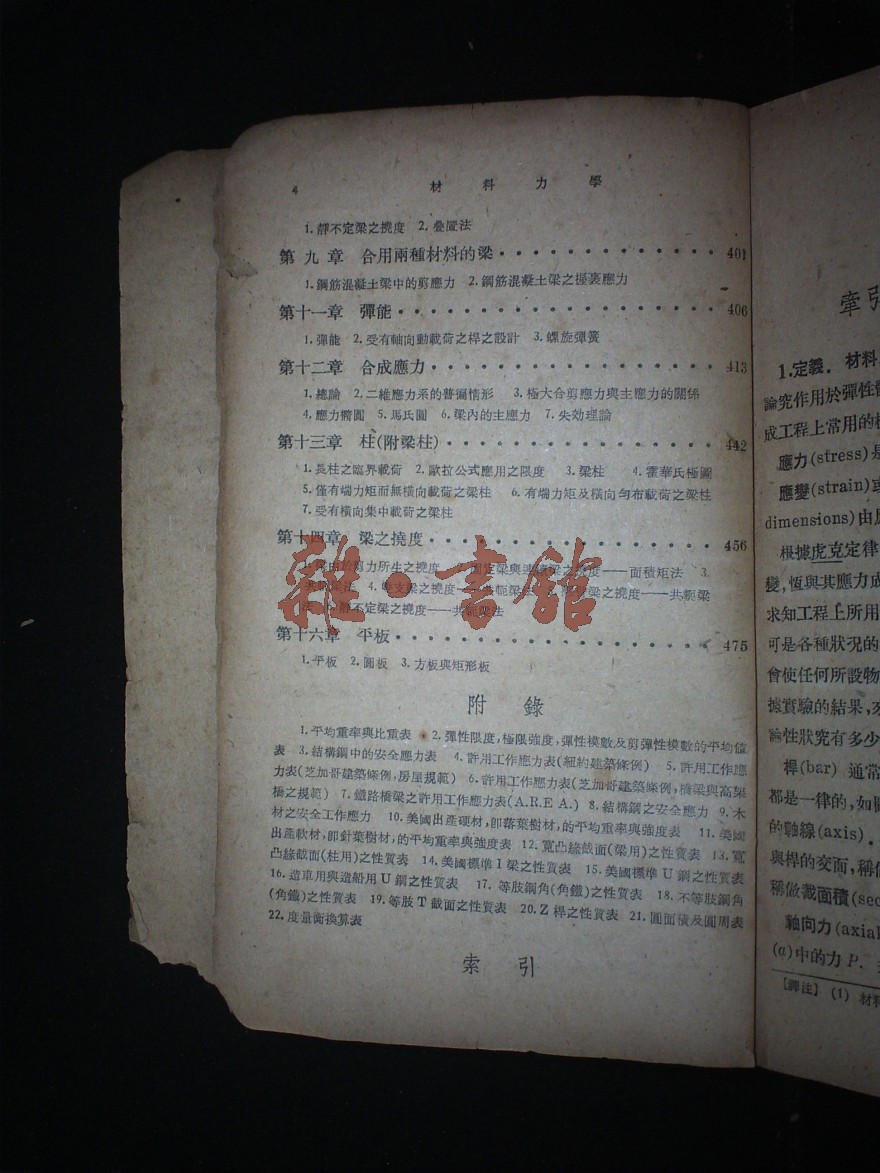 4 材料力學
1.靜不定梁之撓度 2.疊置法
第九章 合用兩種材料的梁 401
1.鋼筋混凝土梁中的剪應力 2.鋼筋混凝土梁之握裹應力
第十一章 彈能 406
1.彈能 2.受有軸向動載荷之桿之設計 3.螺旋彈簧
第十二章 合成應力 413
1.總論 2.二維應力系的普徧情形 3.極大合剪應力與主應力的關係
4.應力橢圓 5.馬氏圓 6.梁內的主應力 7.失効理論
第十三章 柱(附梁柱) 442
1.長柱之臨界載荷 2.歐拉公式應用之限度 3.梁柱 4.霍華氏極圖
5.僅有端力矩而無橫向載荷之梁柱 6.有端力矩及橫向勻布載荷之梁柱
7.受有橫向集中載荷之梁柱
第十四章 梁之撓度 456
剪力所生之撓度 撓度——面積矩法 3.
梁法 4. 支梁之撓度——共軛梁 梁之撓度——共軛梁
法 靜不定梁之撓度——共軛梁法
第十六章 平板 475
1.平板 2.圓板 3.方板與矩形板
附錄
1.平均重率與比重表 2.彈性限度,極限強度,彈性模數及剪彈性模數的平均值
表 3.結構鋼中的安全應力表 4.許用工作應力表(紐約建築條例) 5.許用工作應
力表(芝加哥建築條例,房屋規範) 6.許用工作應力表(芝加哥建築條例,橋梁與高架
橋之規範) 7.鐵路橋梁之許用工作應力表(A.R.E.A.) 8.結構鋼之安全應力 9.木
材之安全工作應力 10.美國出產硬材,卽落葉樹材,的平均重率與強度表 11.美國
出產軟材,卽針葉樹材,的平均重率與強度表 12.寬凸緣截面(梁用)之性質表 13.寬
凸緣截面(柱用)之性質表 14.美國標準I梁之性質表 15.美國標準U鋼之性質表
16.造車用與造船用U鋼之性質表 17.等肢鋼角(角鐵)之性質表 18.不等肢鋼角
(角鐵)之性質表 19.等肢T截面之性質表 20.Z桿之性質表 21.圓面積及圓周表
22.度量衡換算表
索引
雜·書館
1.定義. 材料
論究作用於彈性
成工程上常用的
應力(stress)是
應變(strain)或
dimensions)由
根據虎克定律
變,恆與其應力成
求知工程上所用
可是各種狀況的
會使任何所設物
據實驗的結果,
論性狀究有多少
桿(bar) 通常
都是一律的,如
的軸線(axis).
與桿的交面,稱
稱做截面積(sec
軸向力(axial
(a)中的力 P.
[譯注] (1) 材料